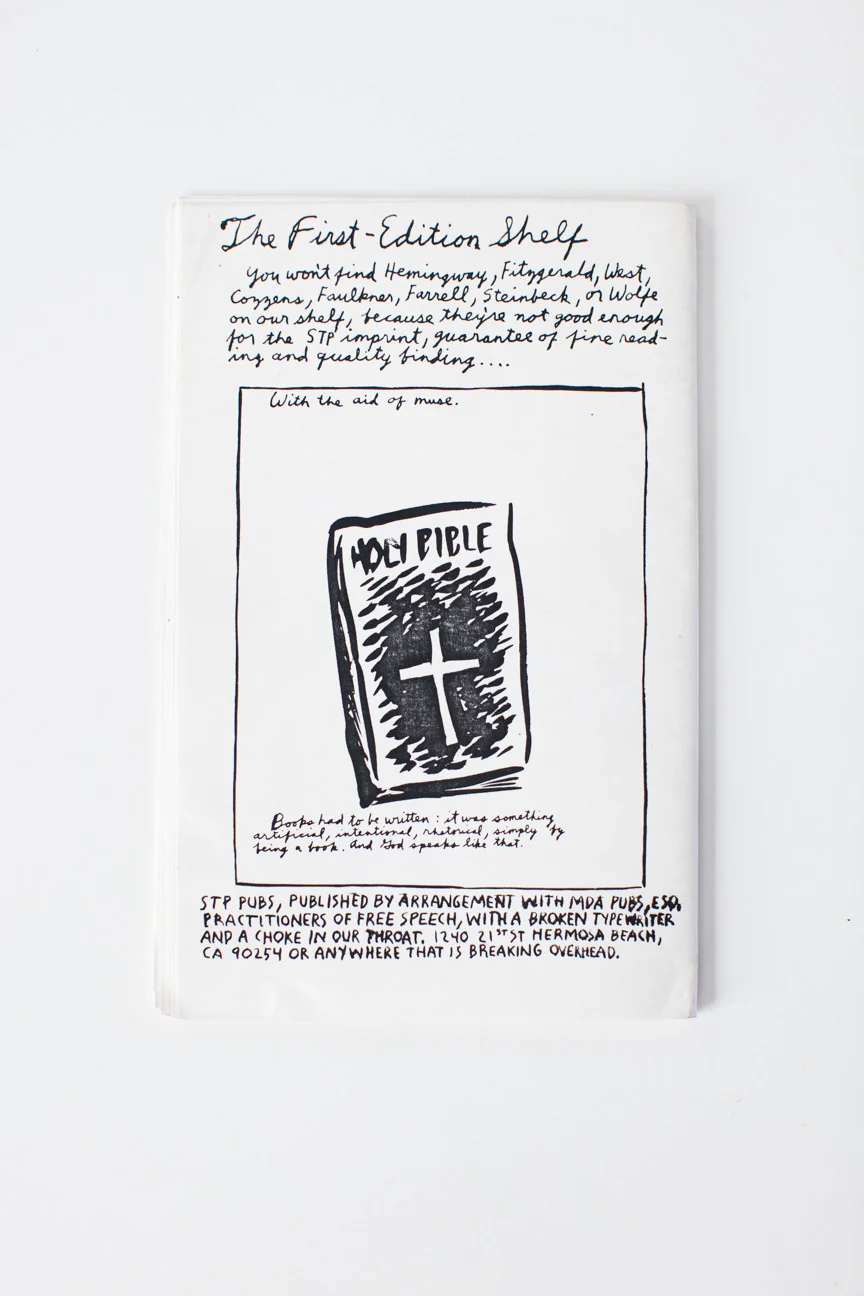 The First-Edition Shelf
You won't find Hemingway, Fitzgerald, West,
Cozzens, Faulkner, Farrell, Steinbeck, or Wolfe
on our shelf, because they're not good enough
for the STP imprint, guarantee of fine read-
ing and quality binding....
With the aid of muse.
HOLY BIBLE
Books had to be written: it was something
artificial, intentional, rhetorical, simply by
being a book. And God speaks like that.
STP PUBS, PUBLISHED BY ARRANGEMENT WITH MDA PUBS, ESQ,
PRACTITIONERS OF FREE SPEECH, WITH A BROKEN TYPEWRITER
AND A CHOKE IN OUR THROAT. 1240 21ST ST HERMOSA BEACH,
CA 90254 OR ANYWHERE THAT IS BREAKING OVERHEAD.